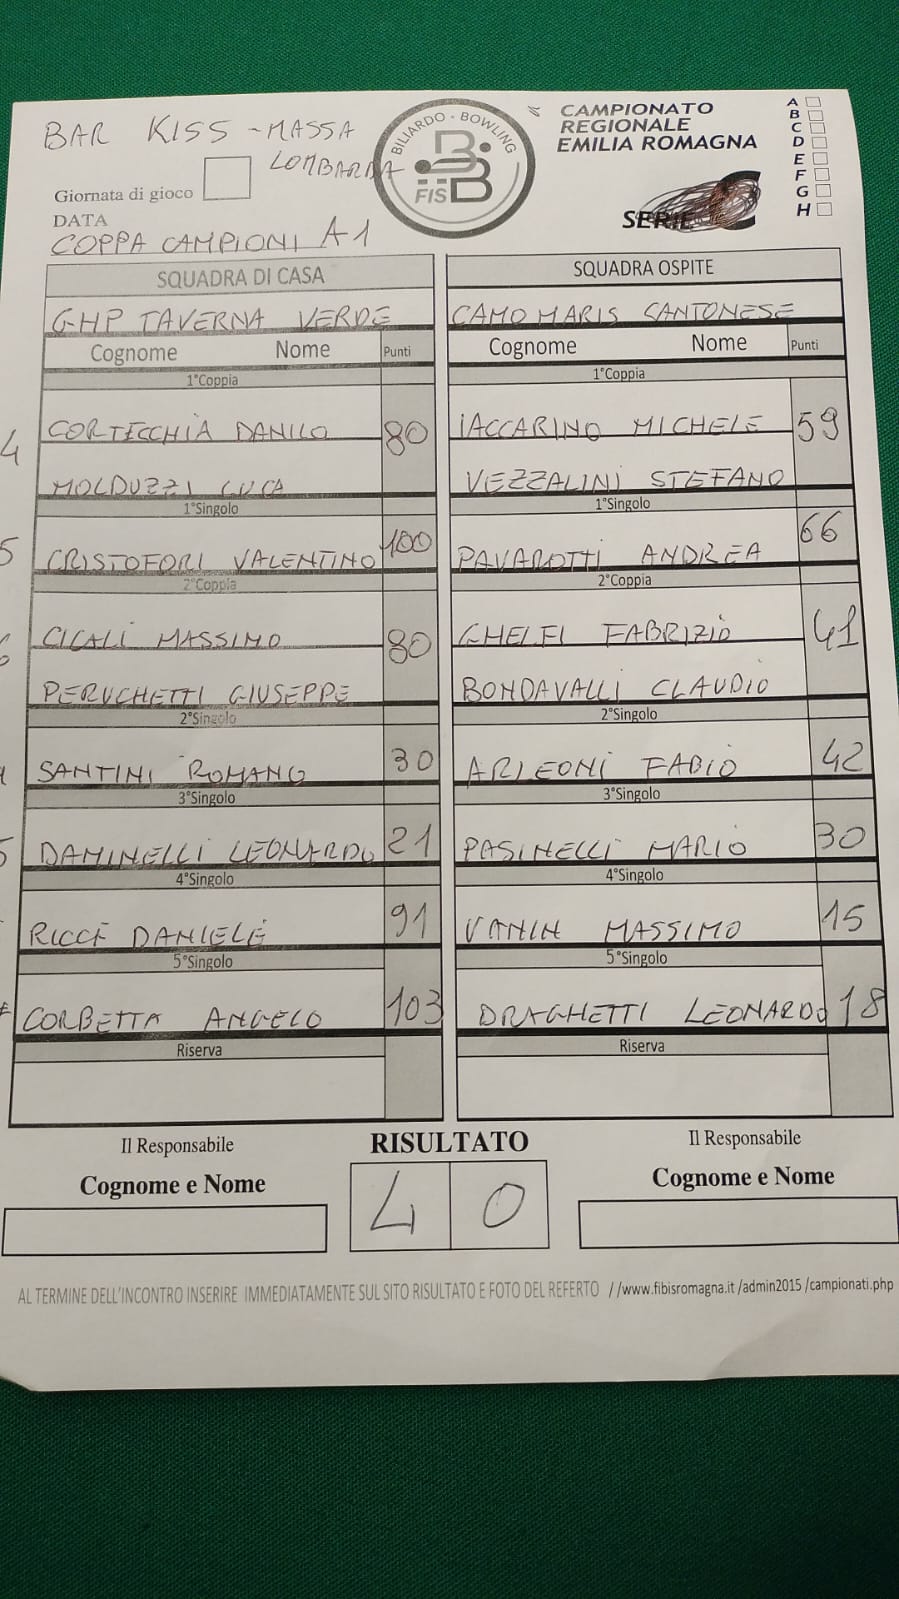 BAR KISS - MASSA
LOMBARDA
BILIARDO - BOWLING
FISBB
CAMPIONATO
REGIONALE
EMILIA ROMAGNA
SERIE
A
B
C
D
E
F
G
H
Giornata di gioco
DATA
COPPA CAMPIONI A1
SQUADRA DI CASA
SQUADRA OSPITE
GHP TAVERNA VERDE
CAMO MARIS SANTONESE
Cognome Nome Punti
Cognome Nome Punti
1°Coppia
1°Coppia
4 CORTECCHIA DANILO 80
IACCARINO MICHELE 59
MOLDUZZI LUCA
VEZZALINI STEFANO
1°Singolo
1°Singolo
5 CRISTOFORI VALENTINO 100
PAVAROTTI ANDREA 66
2°Coppia
2°Coppia
6 CICALI MASSIMO 80
GHELFI FABRIZIO 41
PERUCHETTI GIUSEPPE
BONDAVALLI CLAUDIO
2°Singolo
2°Singolo
SANTINI ROMANO 30
ARLEONI FABIO 42
3°Singolo
3°Singolo
5 DAMINELLI LEONARDO 21
PASINELLI MARIO 30
4°Singolo
4°Singolo
RICCÈ DANIELE 91
VANIN MASSIMO 15
5°Singolo
5°Singolo
CORBETTA ANGELO 103
DRAGHETTI LEONARDO 18
Riserva
Riserva
Il Responsabile
RISULTATO
Il Responsabile
Cognome e Nome
4 0
Cognome e Nome
AL TERMINE DELL'INCONTRO INSERIRE IMMEDIATAMENTE SUL SITO RISULTATO E FOTO DEL REFERTO //www.fibisromagna.it /admin2015 /campionati.php